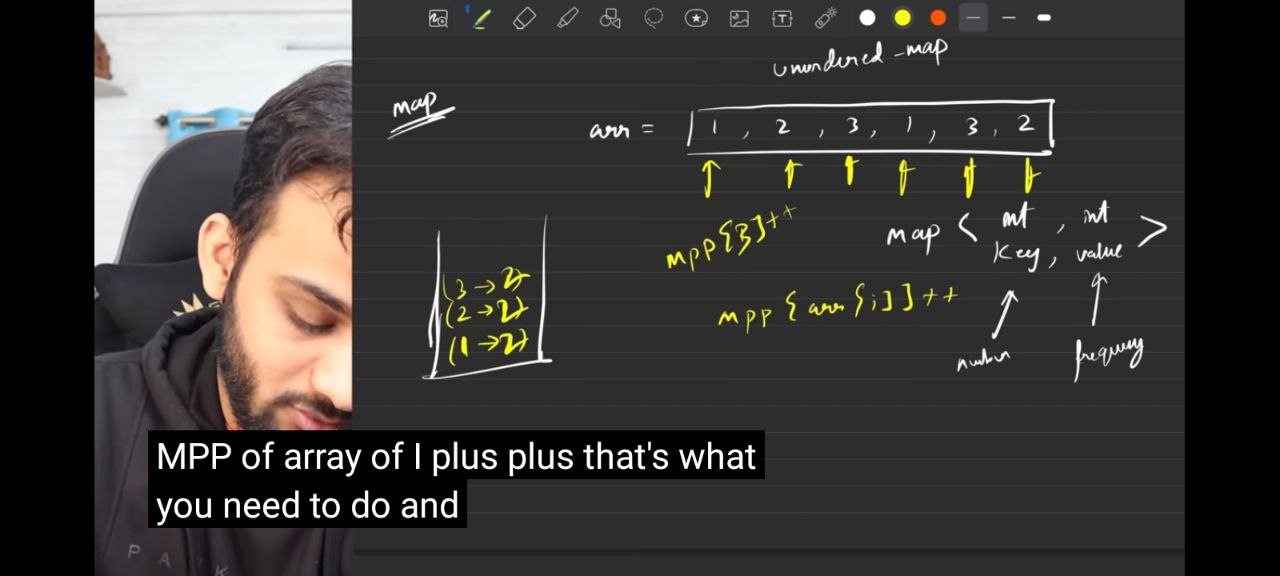 unordered_map
map
arr = [1, 2, 3, 1, 3, 2]
mpp[3]++
map < int, int >
key, value
(3 → 2)
(2 → 2)
(1 → 2)
mpp[arr[i]]++
number
frequency
MPP of array of I plus plus that's what
you need to do and
P A R K